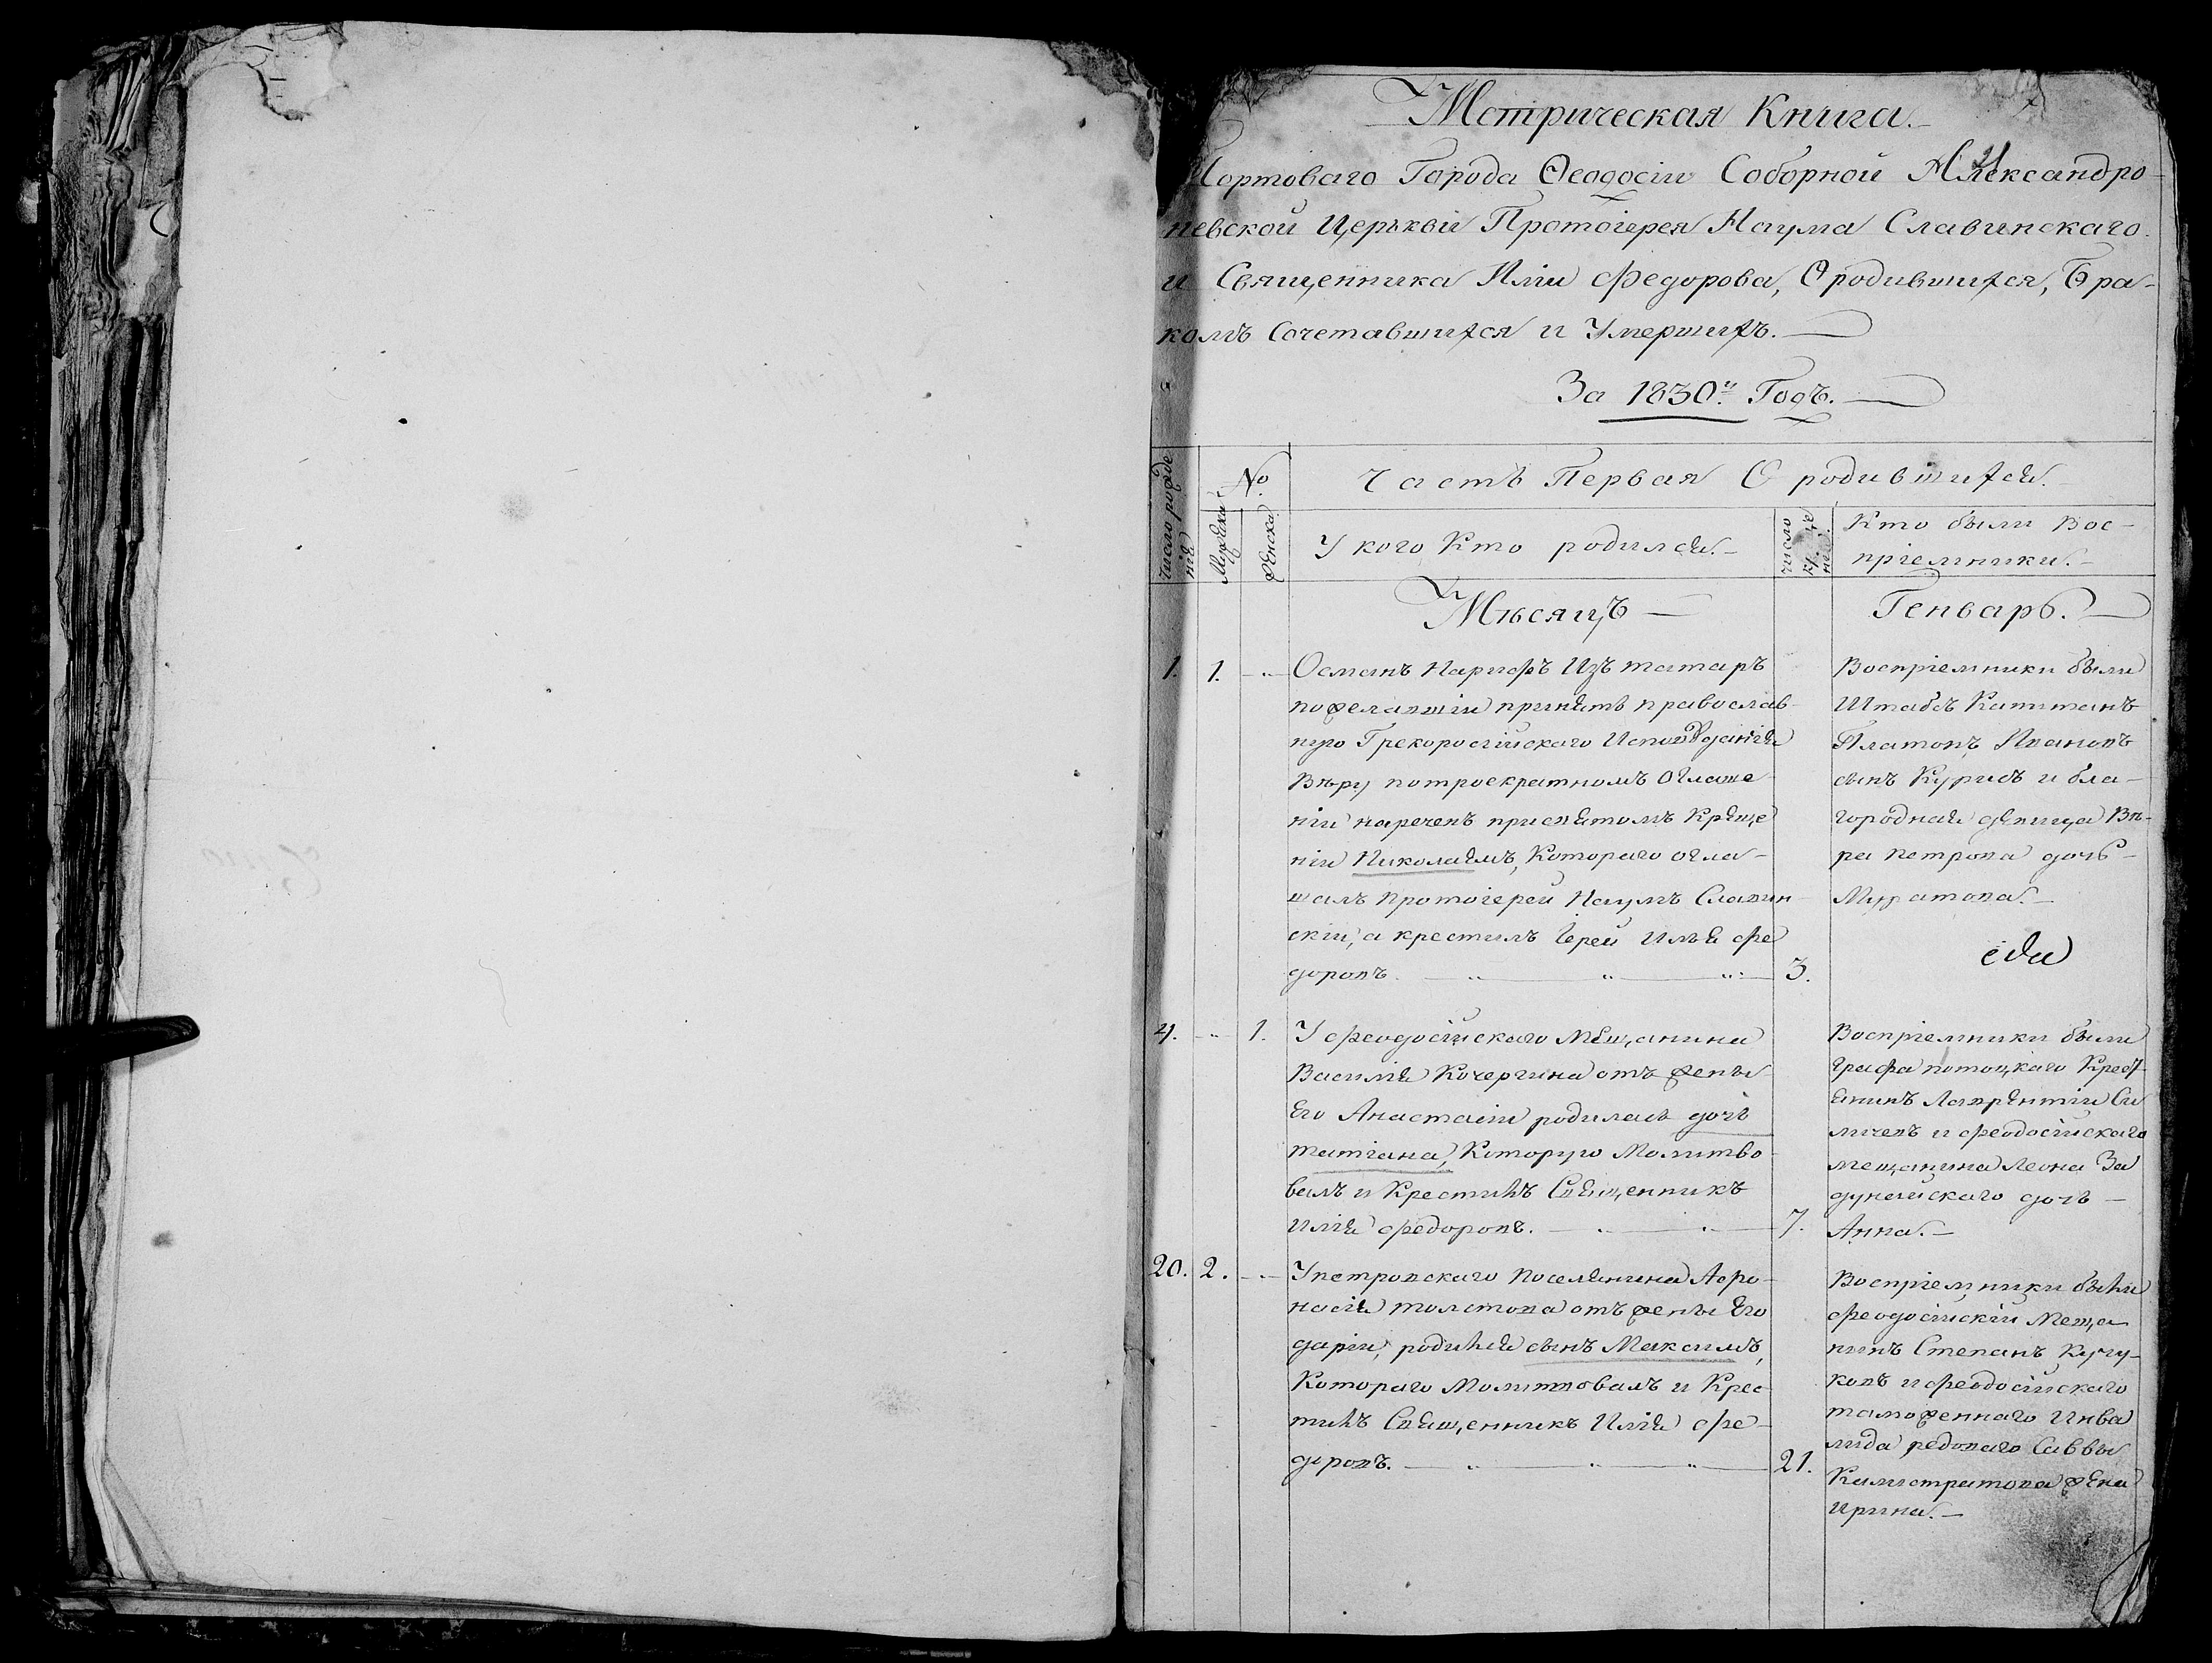 Метрическая Книга.
Портоваго Города Ѳеодосіи Соборной Александро-
невской Церькви Протоіерея Наума Славинскаго
и Священника Иліи Федорова, О родившихся, Бра-
комъ Сочетавшихся и Умершихъ.
За 1830й Годъ.
число рожде
нія
№
Мужеска
женска
Часть Первая О родившихся.
У кого Кто родился.
число
креще
нія.
Кто были Вос-
пріемники.
Мѣсяцъ
Генварь.
1. 1. Османъ Изъ татаръ
пожелавшій принять православ-
ную Грекоросійскаго Исповѣданія
Вѣру потроекратномъ Оглаше-
ніи нареченъ присвятомъ Креще
ніи Николаемъ, Котораго огла-
шалъ Протоіерей Наумъ Славин-
скій, а крестилъ Іерей Илья Фе
доровъ. 3.
Воспріемники были
Штабсъ Капитанъ
Платонъ Ивановъ
сынъ Курисъ и бла-
городная девица Вѣ-
ра Петрова дочь
Муратова.
4. 1. У Феодосійскаго Мещанина
Василія Кочергина отъ жены
Его Анастасіи родилась дочь
татіана, Которую Молитво-
валъ и Крестилъ Священникъ
Илія Федоровъ. 7.
Воспріемники были
Графа потоцкаго Крест
янинъ Лаврентій Си
мичевъ и Феодосійскаго
мещанина Леона За
дунайскаго дочь
Анна.
20. 2. У петровскаго Поселянина Афо-
насія толстова отъ жены Его
даріи, родился сынъ Максимъ,
Котораго Молитвовалъ и Крес-
тилъ Священникъ Илія Фе-
доровъ. 21.
Воспріемники были
Феодосійскій Меща
нинъ Степанъ Кучу-
ковъ и Феодосійскаго
таможеннаго Инва
лида редоваго Саввы
Калистратова жена
Ирина.